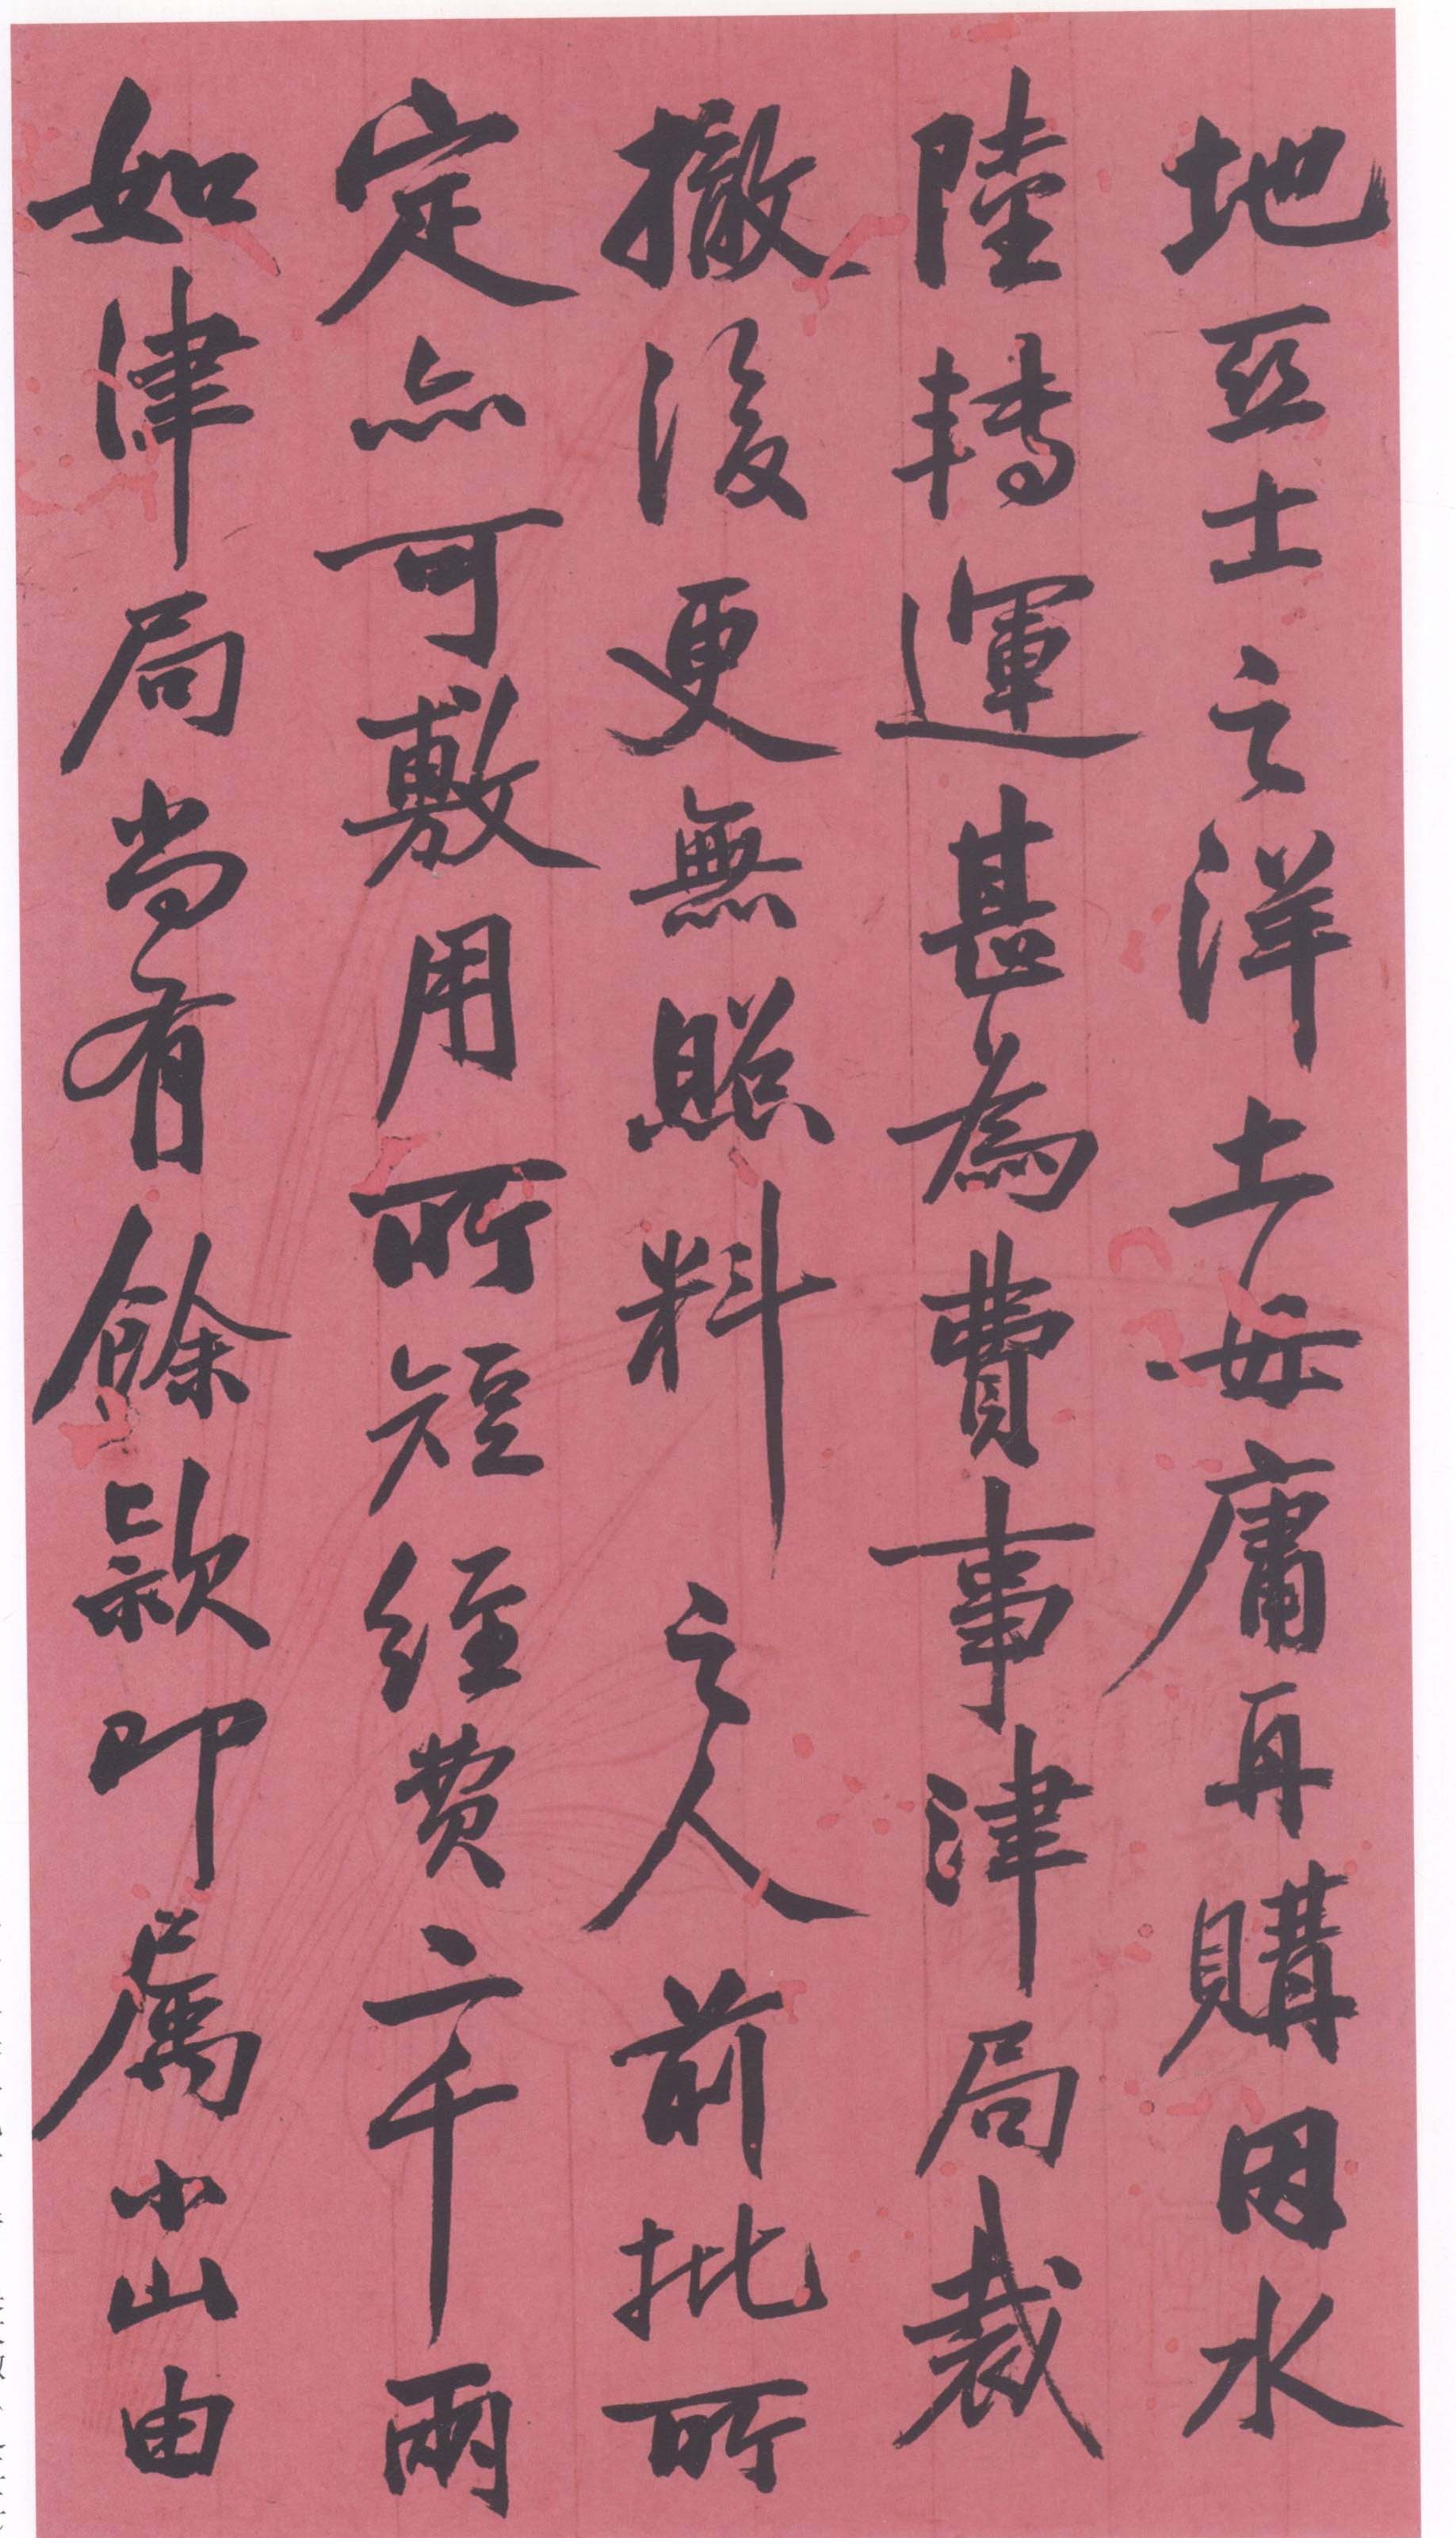 地亞士之洋土毋庸再購因水
陸轉運甚為費事津局裁
撤後更無照料之人前批所
定亦可敷用所短經費二千兩
如津局尚有餘款叩屬小山由